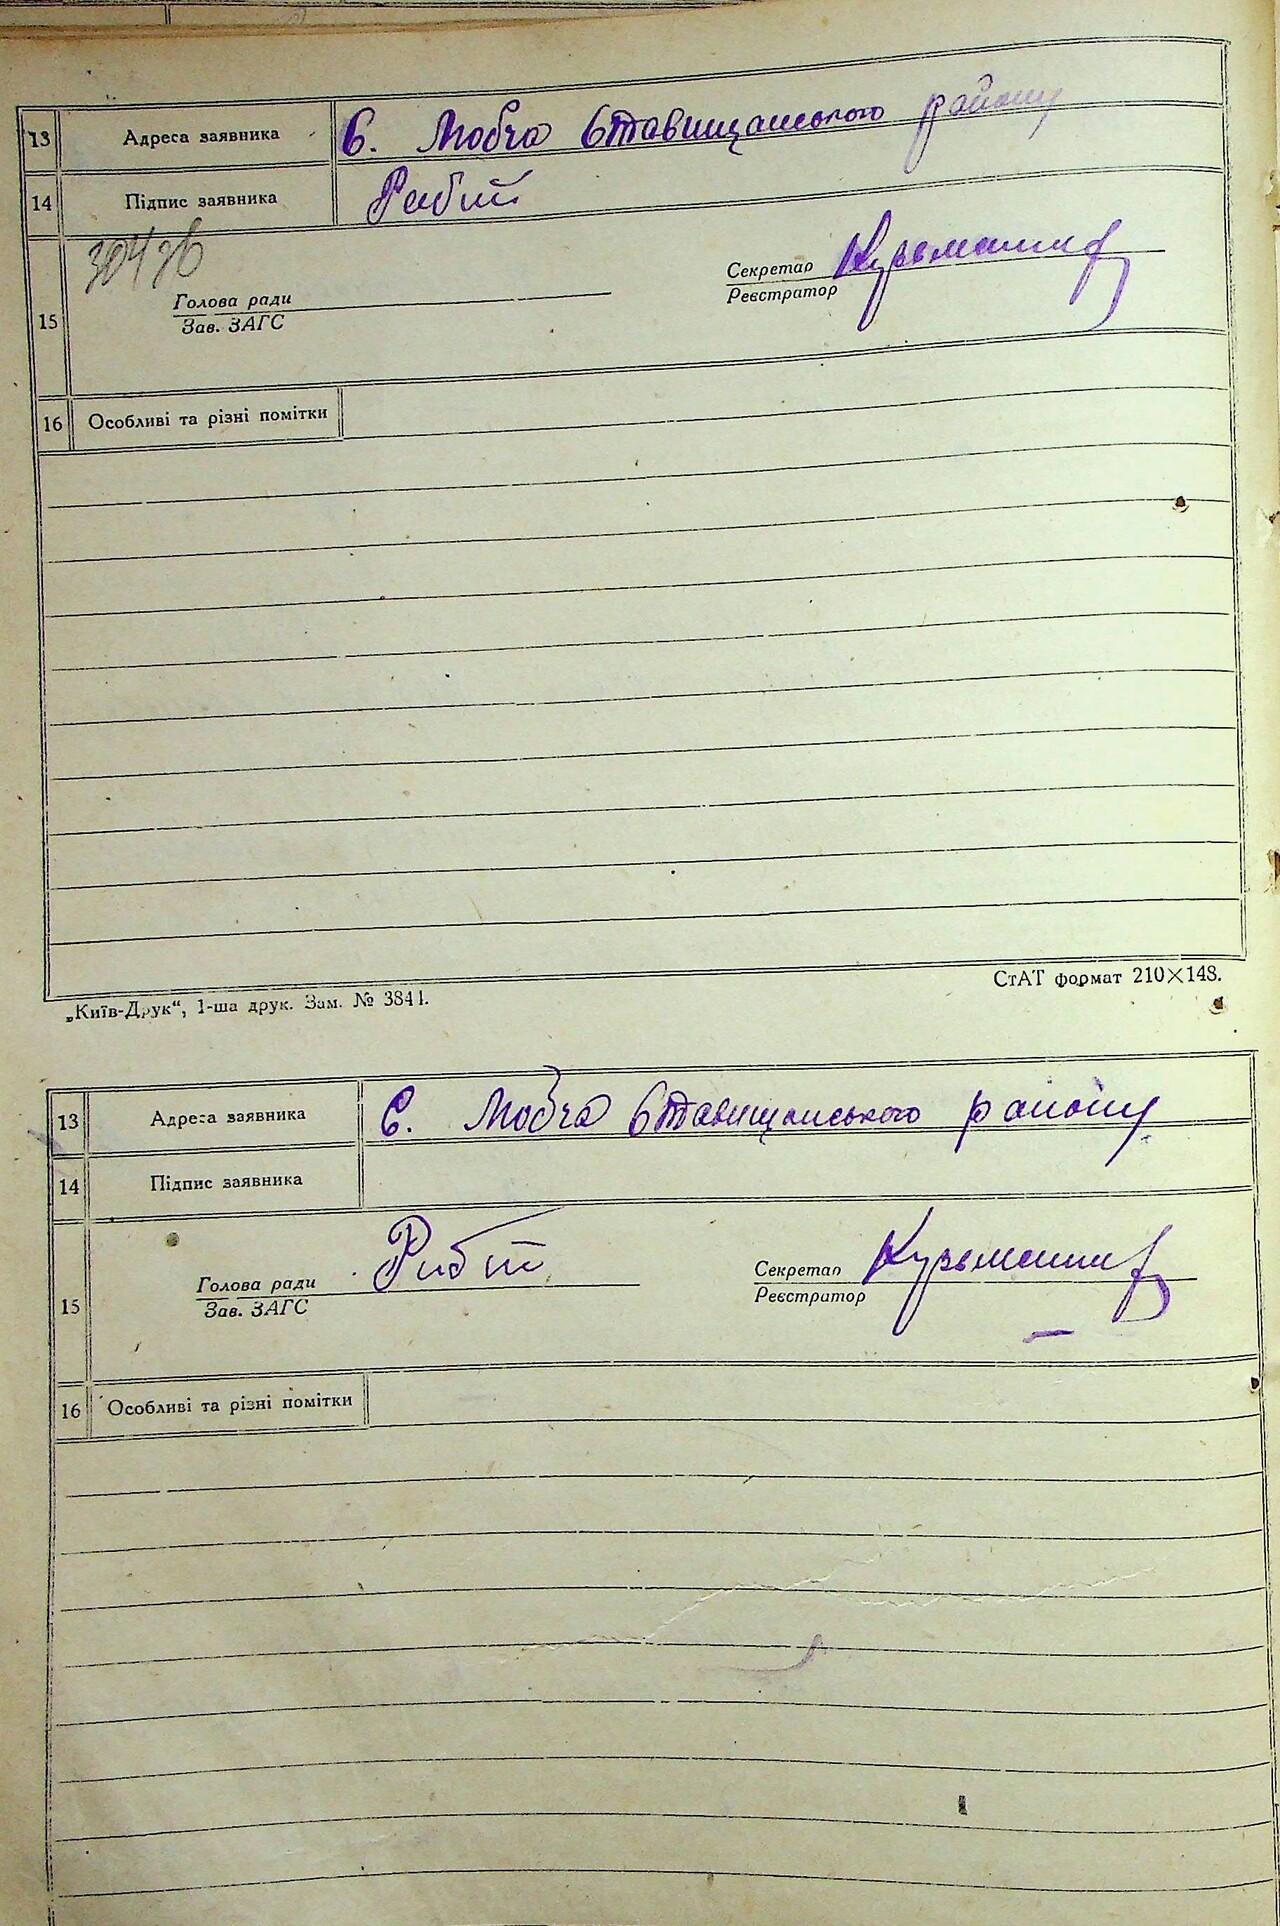 13 Адреса заявника С. Мовча Ставищанського району
14 Підпис заявника
15
Голова ради
Зав. ЗАГС
Секретар
Реєстратор
16 Особливі та різні помітки
„Київ-Друк“, 1-ша друк. Зам. № 3841.
СтАТ формат 210×148.
13 Адреса заявника С. Мовча Ставищанського району
14 Підпис заявника
15
Голова ради
Зав. ЗАГС
Секретар
Реєстратор
16 Особливі та різні помітки